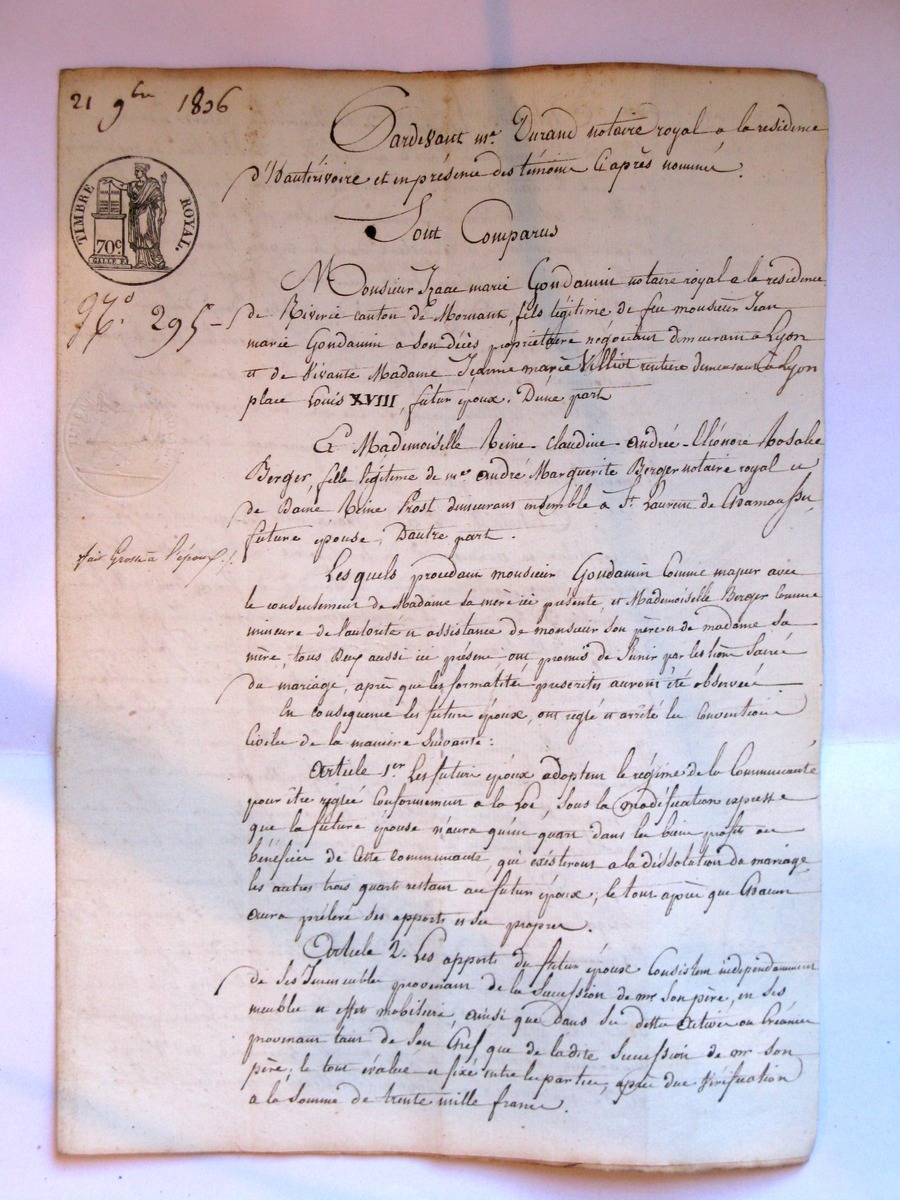 21 9bre 1826
Pardevant me. Durand notaire royal a la residence
d'Hauterivoire et en présence des témoins ci après nommés.
TIMBRE ROYAL.
70c.
GALLE F.
Sont Comparus
Monsieur Isaac marie Gondamin notaire royal a la residence
No. 295 -
de Riverie canton de Mornant, fils légitime de feu monsieur Jean
marie Gondamin a son décès propriétaire négociant demeurant a Lyon
et de vivante Madame Jeanne marie Villiot rentiere demeurant à Lyon
place Louis XVIII, futur époux, D'une part
Et Mademoiselle Reine - Claudine - andrée - Eléonore Rosalie
Berger, fille légitime de me. andré Marguerite Berger notaire royal et
de Dame Reine Prost demeurans ensemble à St. Laurent de Chamousset
future épouse, D'autre part.
fait Grosse à l'époux ./.
Lesquels procedant monsieur Gondamin Comme majeur avec
le consentement de Madame sa mère ici présente, et Mademoiselle Berger Comme
mineure de l'autorité et assistance de monsieur son père et de madame sa
mère, tous deux aussi ici présens ont promis de s'unir par les liens Sacrés
du mariage, après que les formalités prescrites auront été observées
En consequence les futurs époux, ont réglé et arrêté les Conventions
Civiles de la manière Suivante :
Article 1er. Les futurs époux adoptent le régime de la Communauté
pour être réglée Conformement a la Loi, Sous la modification expresse
que la future épouse n'aura qu'un quart dans les biens profits ou
bénéfices de Cette Communauté, qui existeront a la dissolution du mariage
les autres trois quart restant au futur époux ; le tout après que Chacun
aura prélevé ses apports et ses propres.
Article 2. Les apports du futur époux Consistent independamment
de ses Immeubles provenant de la Succession de mr Son père, en ses
meubles et effets mobiliers, ainsi que dans ses dettes actives ou Créances
provenant tant de Son Chef, que de la dite Succession de mr Son
père ; le tout évalué et fixé entre les parties, après due vérification
a la Somme de trente mille francs.